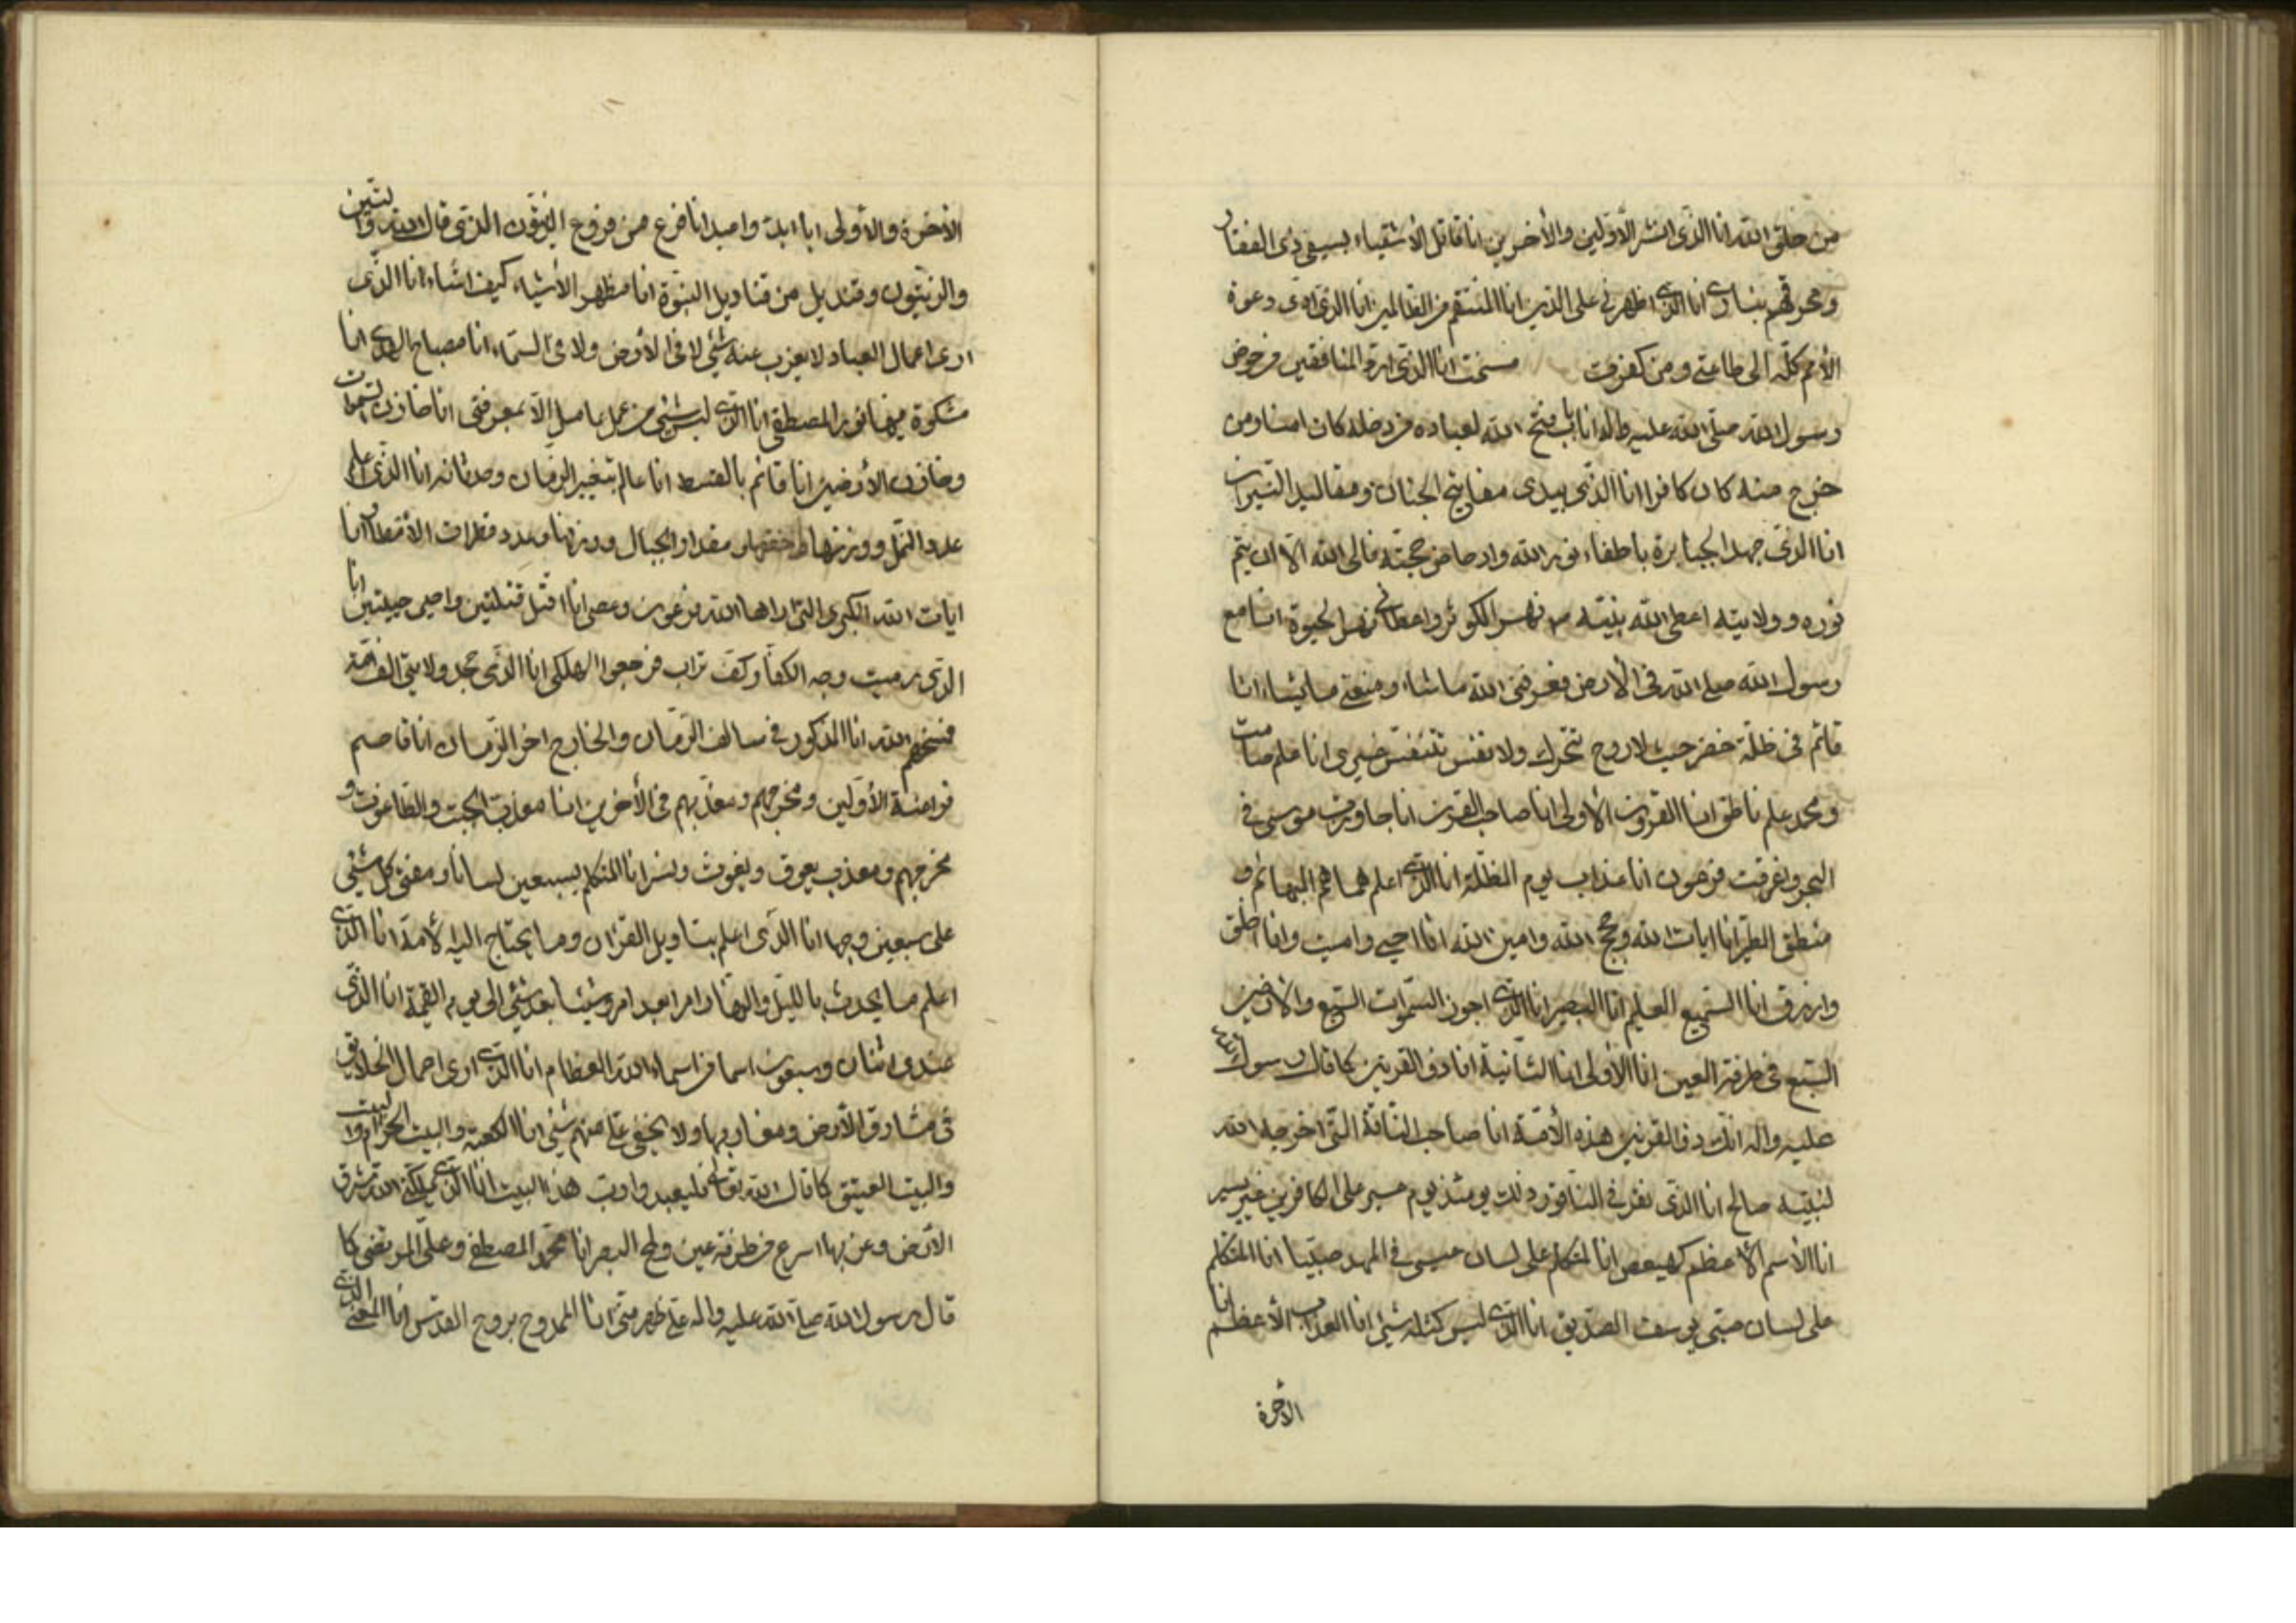 من خلق الله انا الذى انشر الأولين والأخرين انا قاتل الأشقياء بسيفى ذى الفقار
ومحرقهم بنارى انا الذى اظهرنى على الدين انا المنتقم من الظالمين انا الذى ادى دعوة
الأمم كله الى طاعتى ومن كفرت مسخت انا الذى ارد المنافقين من حوض
رسول الله صلى الله عليه واله انا باب فتح الله لعباده من دخله كان امنا ومن
خرج منه كان كافرا انا الذى بيدى مفاتيح الجنان ومقاليد النيران
انا الذى جهد الجبابرة باطفاء نور الله وادحاض حجته فابى الله الا ان يتم
نوره وولايته اعطى الله نبيه نهر الكوثر واعطانى نهر الحيوة انا مع
رسول الله صلى الله فى الأرض فعرفنى الله ما شاء ومنعنى ما يشاء انا
قائم فى ظلة خضر حيث لا روح تتحرك ولا نفس تتنفس غيرى انا علم صامت
ومحمد علم ناطق انا القرون الأولى انا صاحب القرن انا جاوزت موسى فى
البحر واغرقت فرعون انا عذاب يوم الظلة انا الذى اعلم هماهم البهائم و
منطق الطير انا ايات الله وحجج الله وامين الله انا احيى واميت وانا اخلق
وارزق انا السميع العليم انا البصير انا الذى اجوز السموات السبع والأرضين
السبع فى طرفة العين انا الأولى انا الثانية انا ذو القرنين كما قال رسول الله
عليه واله انك ذو القرنين هذه الأمة انا صاحب الناقة التى اخرجها الله
لنبيه صالح انا الذى نقر فى الناقور وذلك يومئذ يوم عسير على الكافرين غير يسير
انا الأسم الأعظم كهيعص انا المتكلم على لسان عيسى فى المهد صبيا انا المتكلم
على لسان صبى يوسف الصديق انا الذى ليس كمثله شئ انا العذاب الأعظم انا
الأخرة
الأخرة والأولى انا ابدء واعيد انا فرع من فروع الزيتون الذى قال الله والتين
والزيتون وقنديل من قناديل النبوة انا مظهر الأشياء كيف اشاء انا الذى
ارى اعمال العباد لا يعزب عنه شئ لا فى الأرض ولا فى السماء انا مصباح الهدى انا
مشكوة فيها نور المصطفى انا الذى ليس شئ من عمل عامل الا بمعرفتى انا خازن السموات
وخازن الأرضين انا قائم بالقسط انا عالم بتغير الزمان وحدثانه انا الذى اعلم
عدد النمل ووزنها وخفتها ومقدار الجبال ووزنها وعدد قطرات الأمطار انا
ايات الله الكبرى التى اراها الله فرعون وعصى انا اقتل قتلتين واحيى حييتين انا
الذى رميت وجه الكفار كف تراب فرجعوا الهلكى انا الذى جحد ولايتى الف امة
فمسخهم الله انا المذكور فى سالف الزمان والخارج اخر الزمان انا قاصم
فراعنة الأولين ومخرجهم ومعذبهم فى الأخرين انا معذب الجبت والطاغوت و
مخرجهم ومعذب يعوق ويغوث ونسر انا المتكلم بسبعين لسانا ومفتى كل شئ
على سبعين وجها انا الذى اعلم بتاويل القران وما يحتاج اليه لأمة انا الذى
اعلم ما يحدث بالليل والنهار امرا بعد امر وشيئا بعد شئ الى يوم القيمة انا الذى
عندى اثنان وسبعون اسما من اسماء الله العظام انا الذى ارى اعمال الخلايق
فى مشارق الأرض ومغاربها ولا يخفى على منهم شئ انا الكعبة والبيت الحرام والبيت
والبيت العتيق كما قال الله تعالى فليعبدوا رب هذا البيت انا الذى يملكنى الله شرق
الأرض وغربها اسرع من طرفة عين ولمح البصر انا محمد المصطفى وعلى المرتضى كما
قال رسول الله صلى الله عليه واله على ظهر منى انا الممدوح بروح القدس انا المعنى الذى